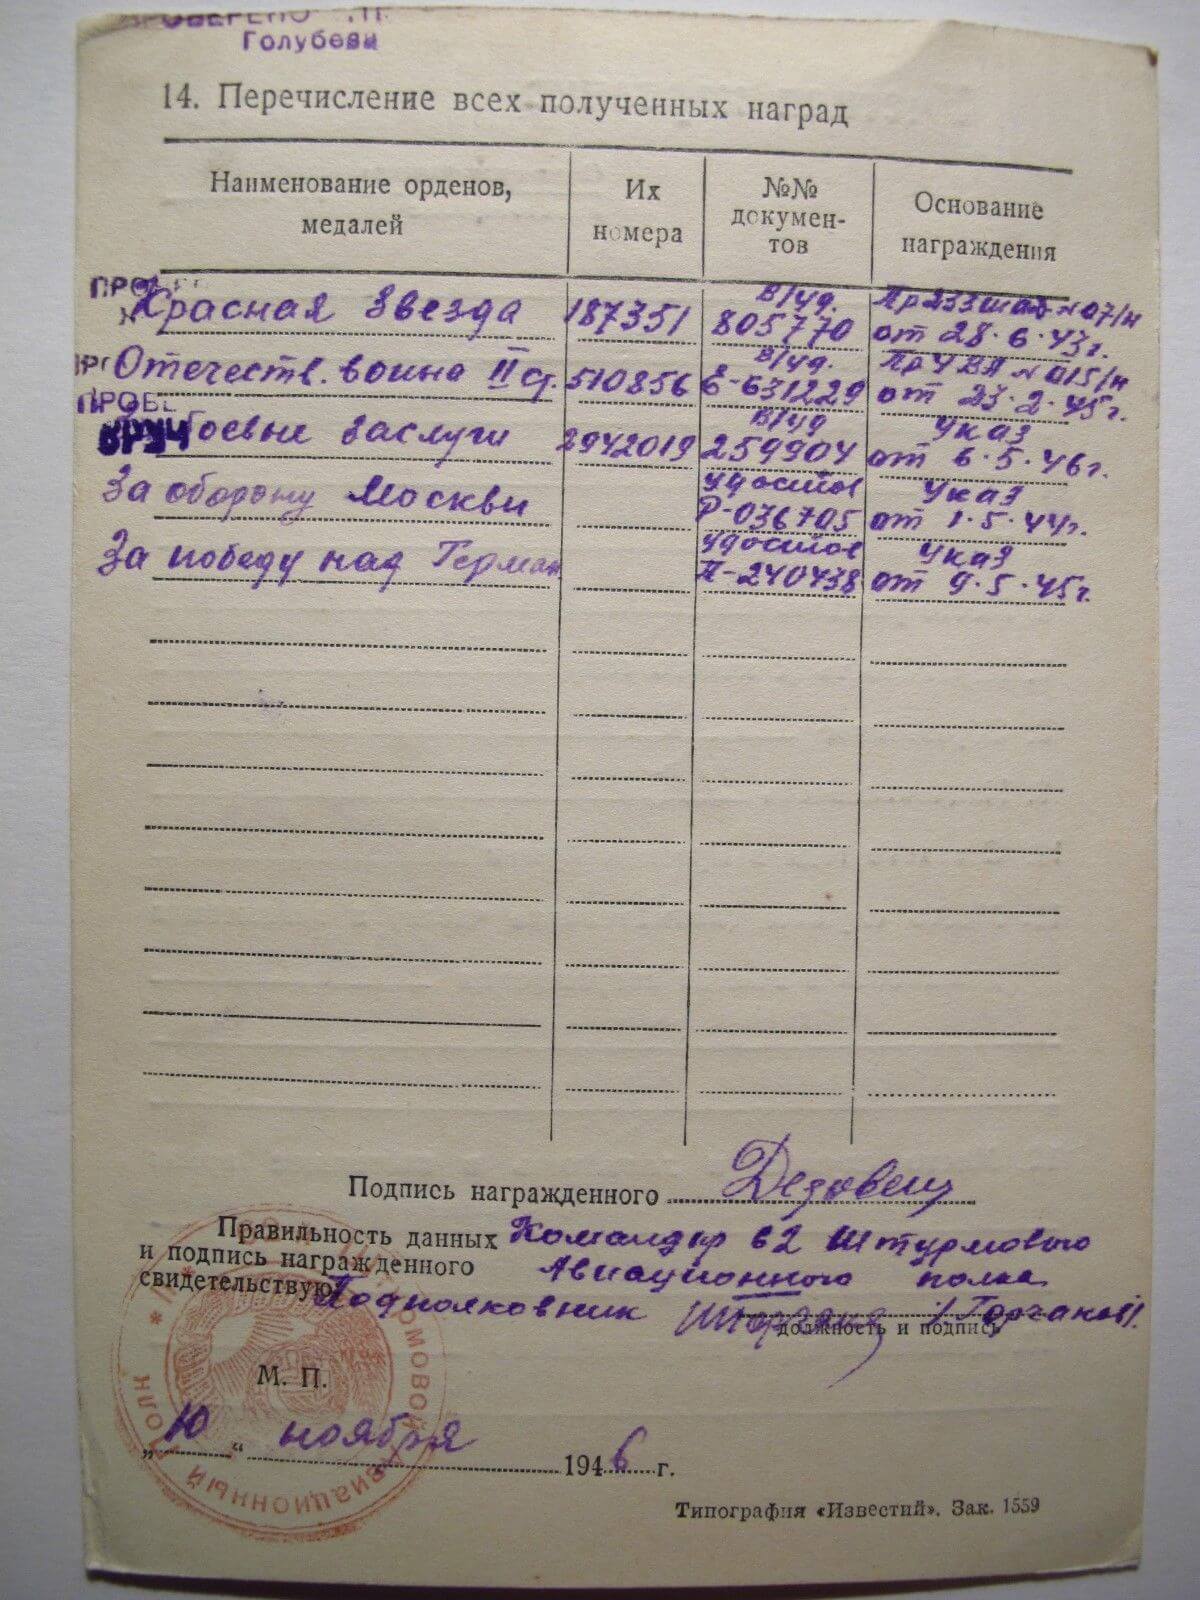 ПРОВЕРЕНО
Голубева
14. Перечисление всех полученных наград
Наименование орденов, медалей
Их номера
№№ докумен-тов
Основание награждения
Красная Звезда 187351 в/уд. 805770 Пр 233 шад №07/н от 28.6.43г.
Отечеств. война II ст. 510856 в/уд. Е-631229 Пр 4 ВА №015/н от 23.2.45г.
Боевые заслуги 2942019 в/уд 259904 Указ от 6.5.46г.
За оборону Москвы удостов Р-036705 Указ от 1.5.44г.
За победу над Герман удостов П-240438 Указ от 9.5.45г.
Подпись награжденного
Правильность данных Командир 62 Штурмового
и подпись награжденного Авиационного полка
свидетельствую Подполковник /Горчаков/
должность и подпись
М. П.
„10“ ноября 1946 г.
Типография «Известий». Зак. 1559